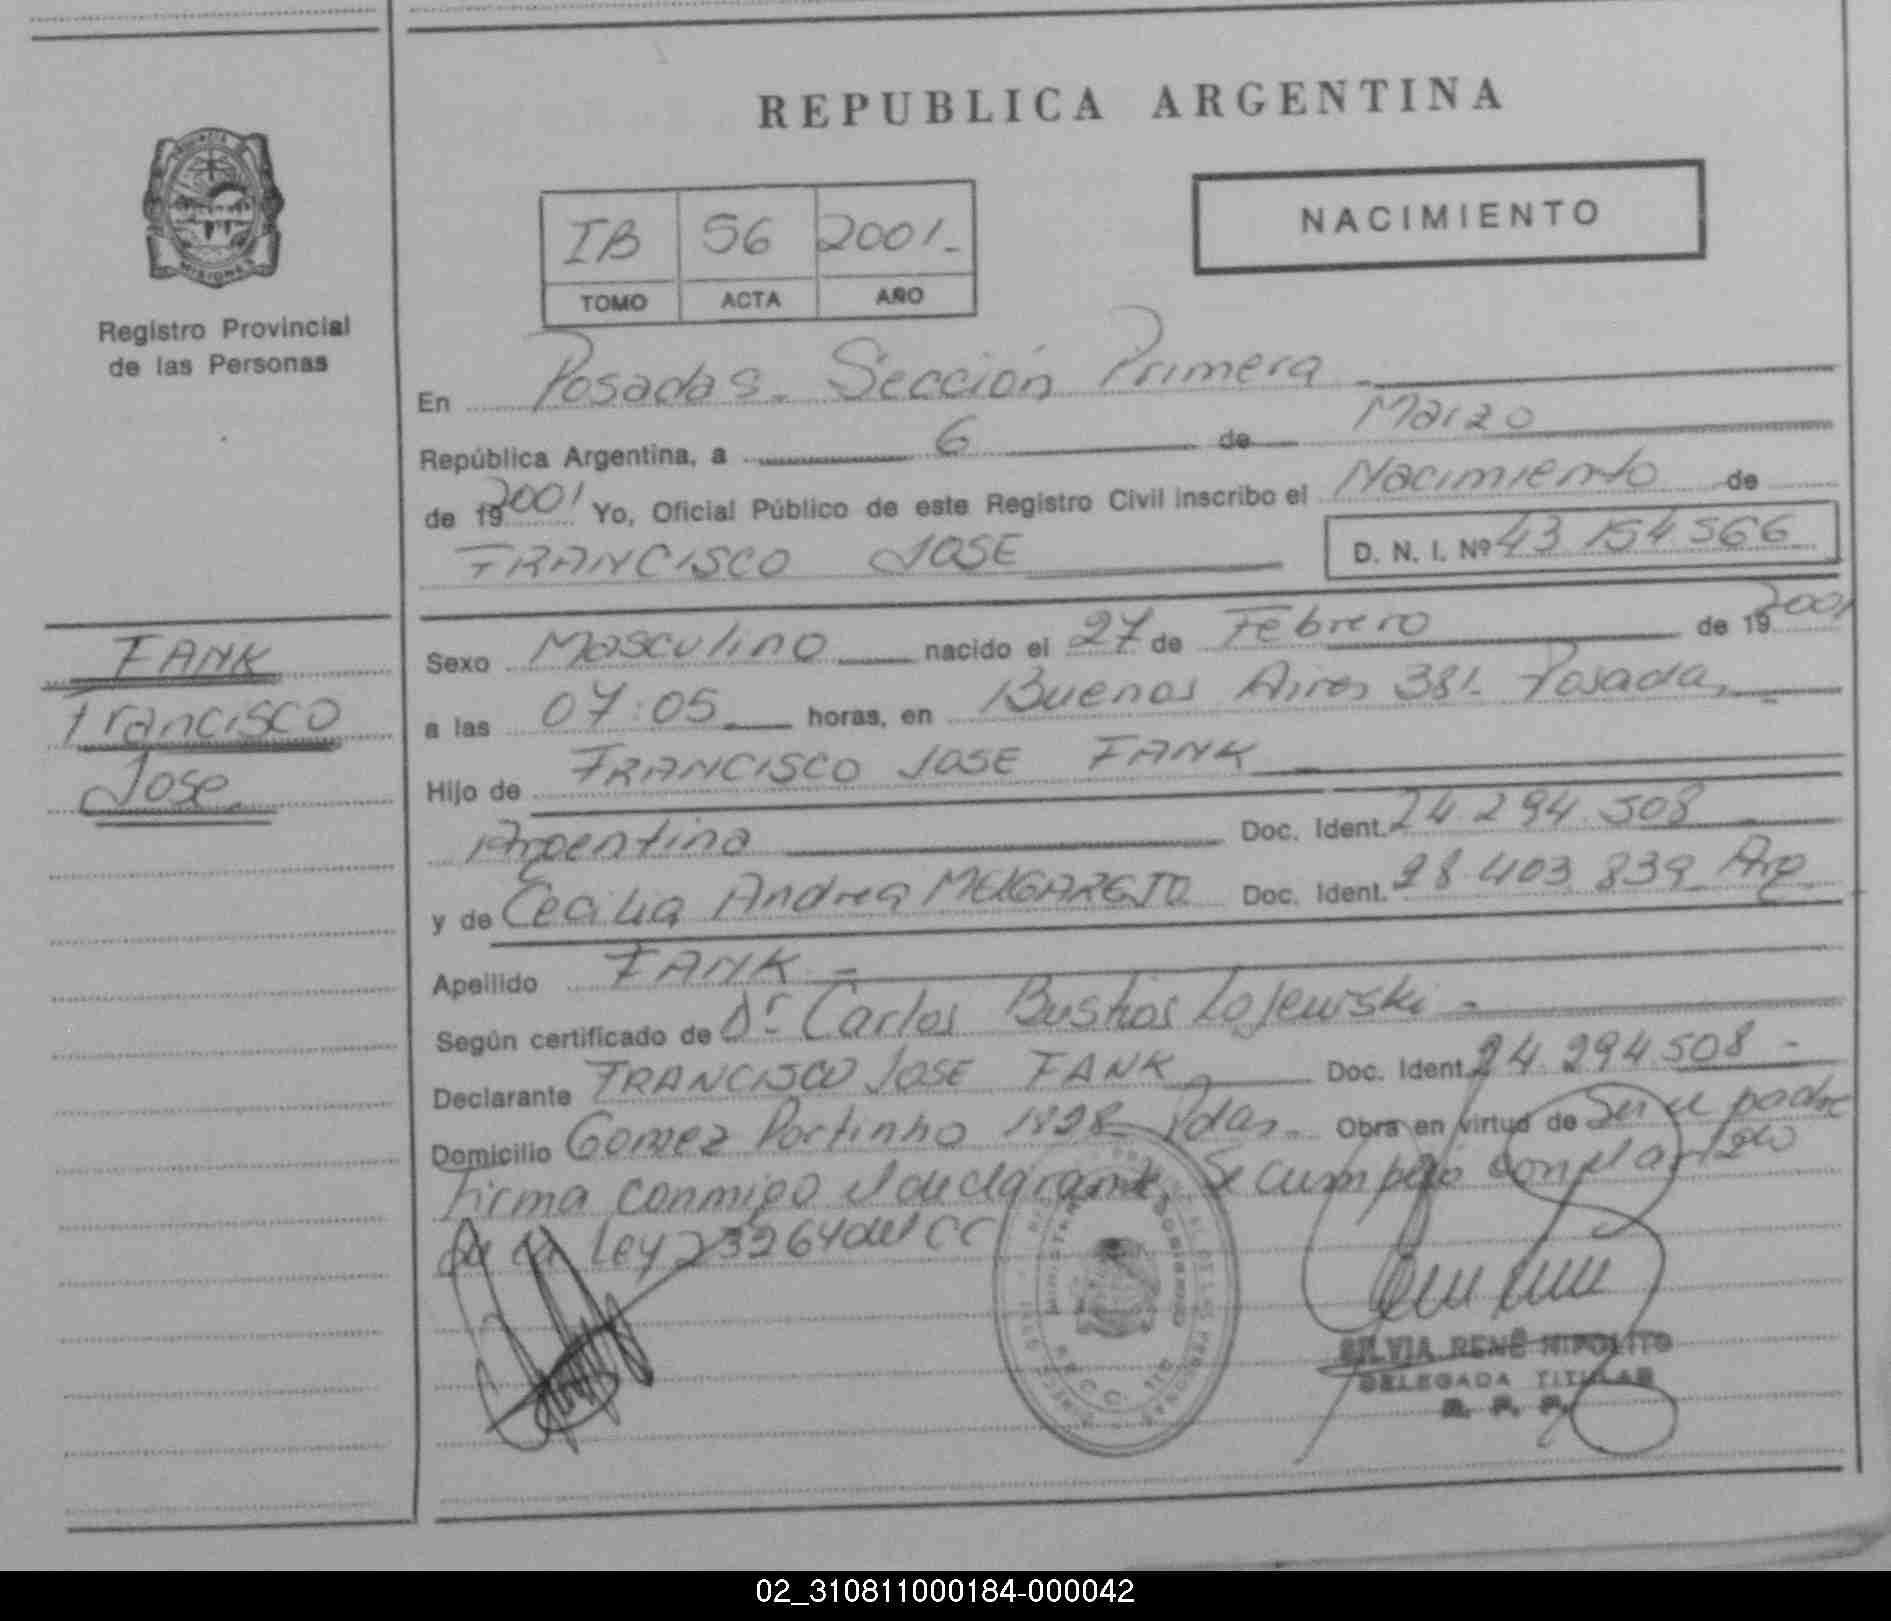 REPUBLICA ARGENTINA
MISIONES
Registro Provincial
de las Personas
IB 56 2001.-
TOMO ACTA AÑO
NACIMIENTO
En Posadas. Sección Primera -
República Argentina, a 6 de Marzo
de 19 2001 Yo, Oficial Público de este Registro Civil inscribo el Nacimiento de
FRANCISCO JOSE D. N. I. Nº 43 154 566
FANK
Francisco
Jose
Sexo Masculino nacido el 27 de Febrero de 19 2001
a las 07:05 horas, en Buenos Aires 381- Posadas
Hijo de FRANCISCO JOSE FANK
Argentina Doc. Ident. 24.294.508
y de Cecilia Andrea MELGAREJO Doc. Ident. 28 403 839 Arg
Apellido FANK -
Según certificado de Dr Carlos Bustios Lojewski -
Declarante FRANCISCO JOSE FANK Doc. Ident. 24.294.508 -
Domicilio Gomez Portinho 1828 Pdas. Obra en virtud de Ser el padre
Firma conmigo el declarante. Se cumplió con
de la Ley 23264 del CC
MINISTERIO GOBIERNO
SILVIA RENÉ HIPOLITO
DELEGADA TITULAR
R. P. P.
02_310811000184-000042